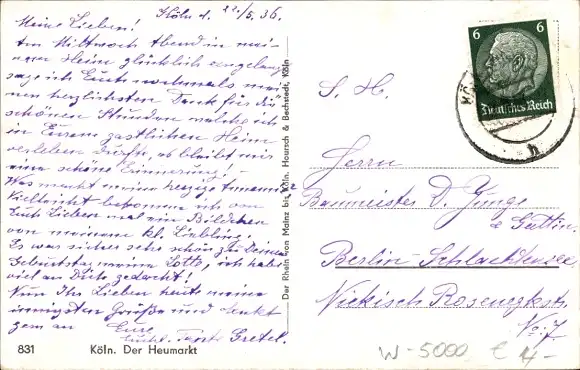 Köln d. 22./5. 36.
Meine Lieben!
Am Mittwoch Abend in mei-
nem Heim glücklich angelangt
sage ich Euch nochmals mei-
nen herzlichsten Dank für die
schönen Stunden welche ich
in Eurem gastlichen Heim
verleben durfte, es bleibt mir
eine schöne Erinnerung!
Was macht meine herzige
Vielleicht bekomme ich von
Euch Lieben mal ein Bildchen
von meinem kl. Liebling!
Es war sicher sehr schön zu Deinem
Geburtstag meine Lotte, ich habe
viel an Dich gedacht!
Nun Ihr Lieben heute meine
innigsten Grüße und denkt
gern an Eure
Tante Gretel.
831 Köln. Der Heumarkt
Der Rhein von Mainz bis Köln. Hoursch & Bechstedt, Köln
6 6
Deutsches Reich
h
S. H.
Herrn
Baumeister D. Junge
& Gattin
Berlin-Schlachtensee
Niekisch Rosenegkstr.
No. 7
W-5000 € 4-